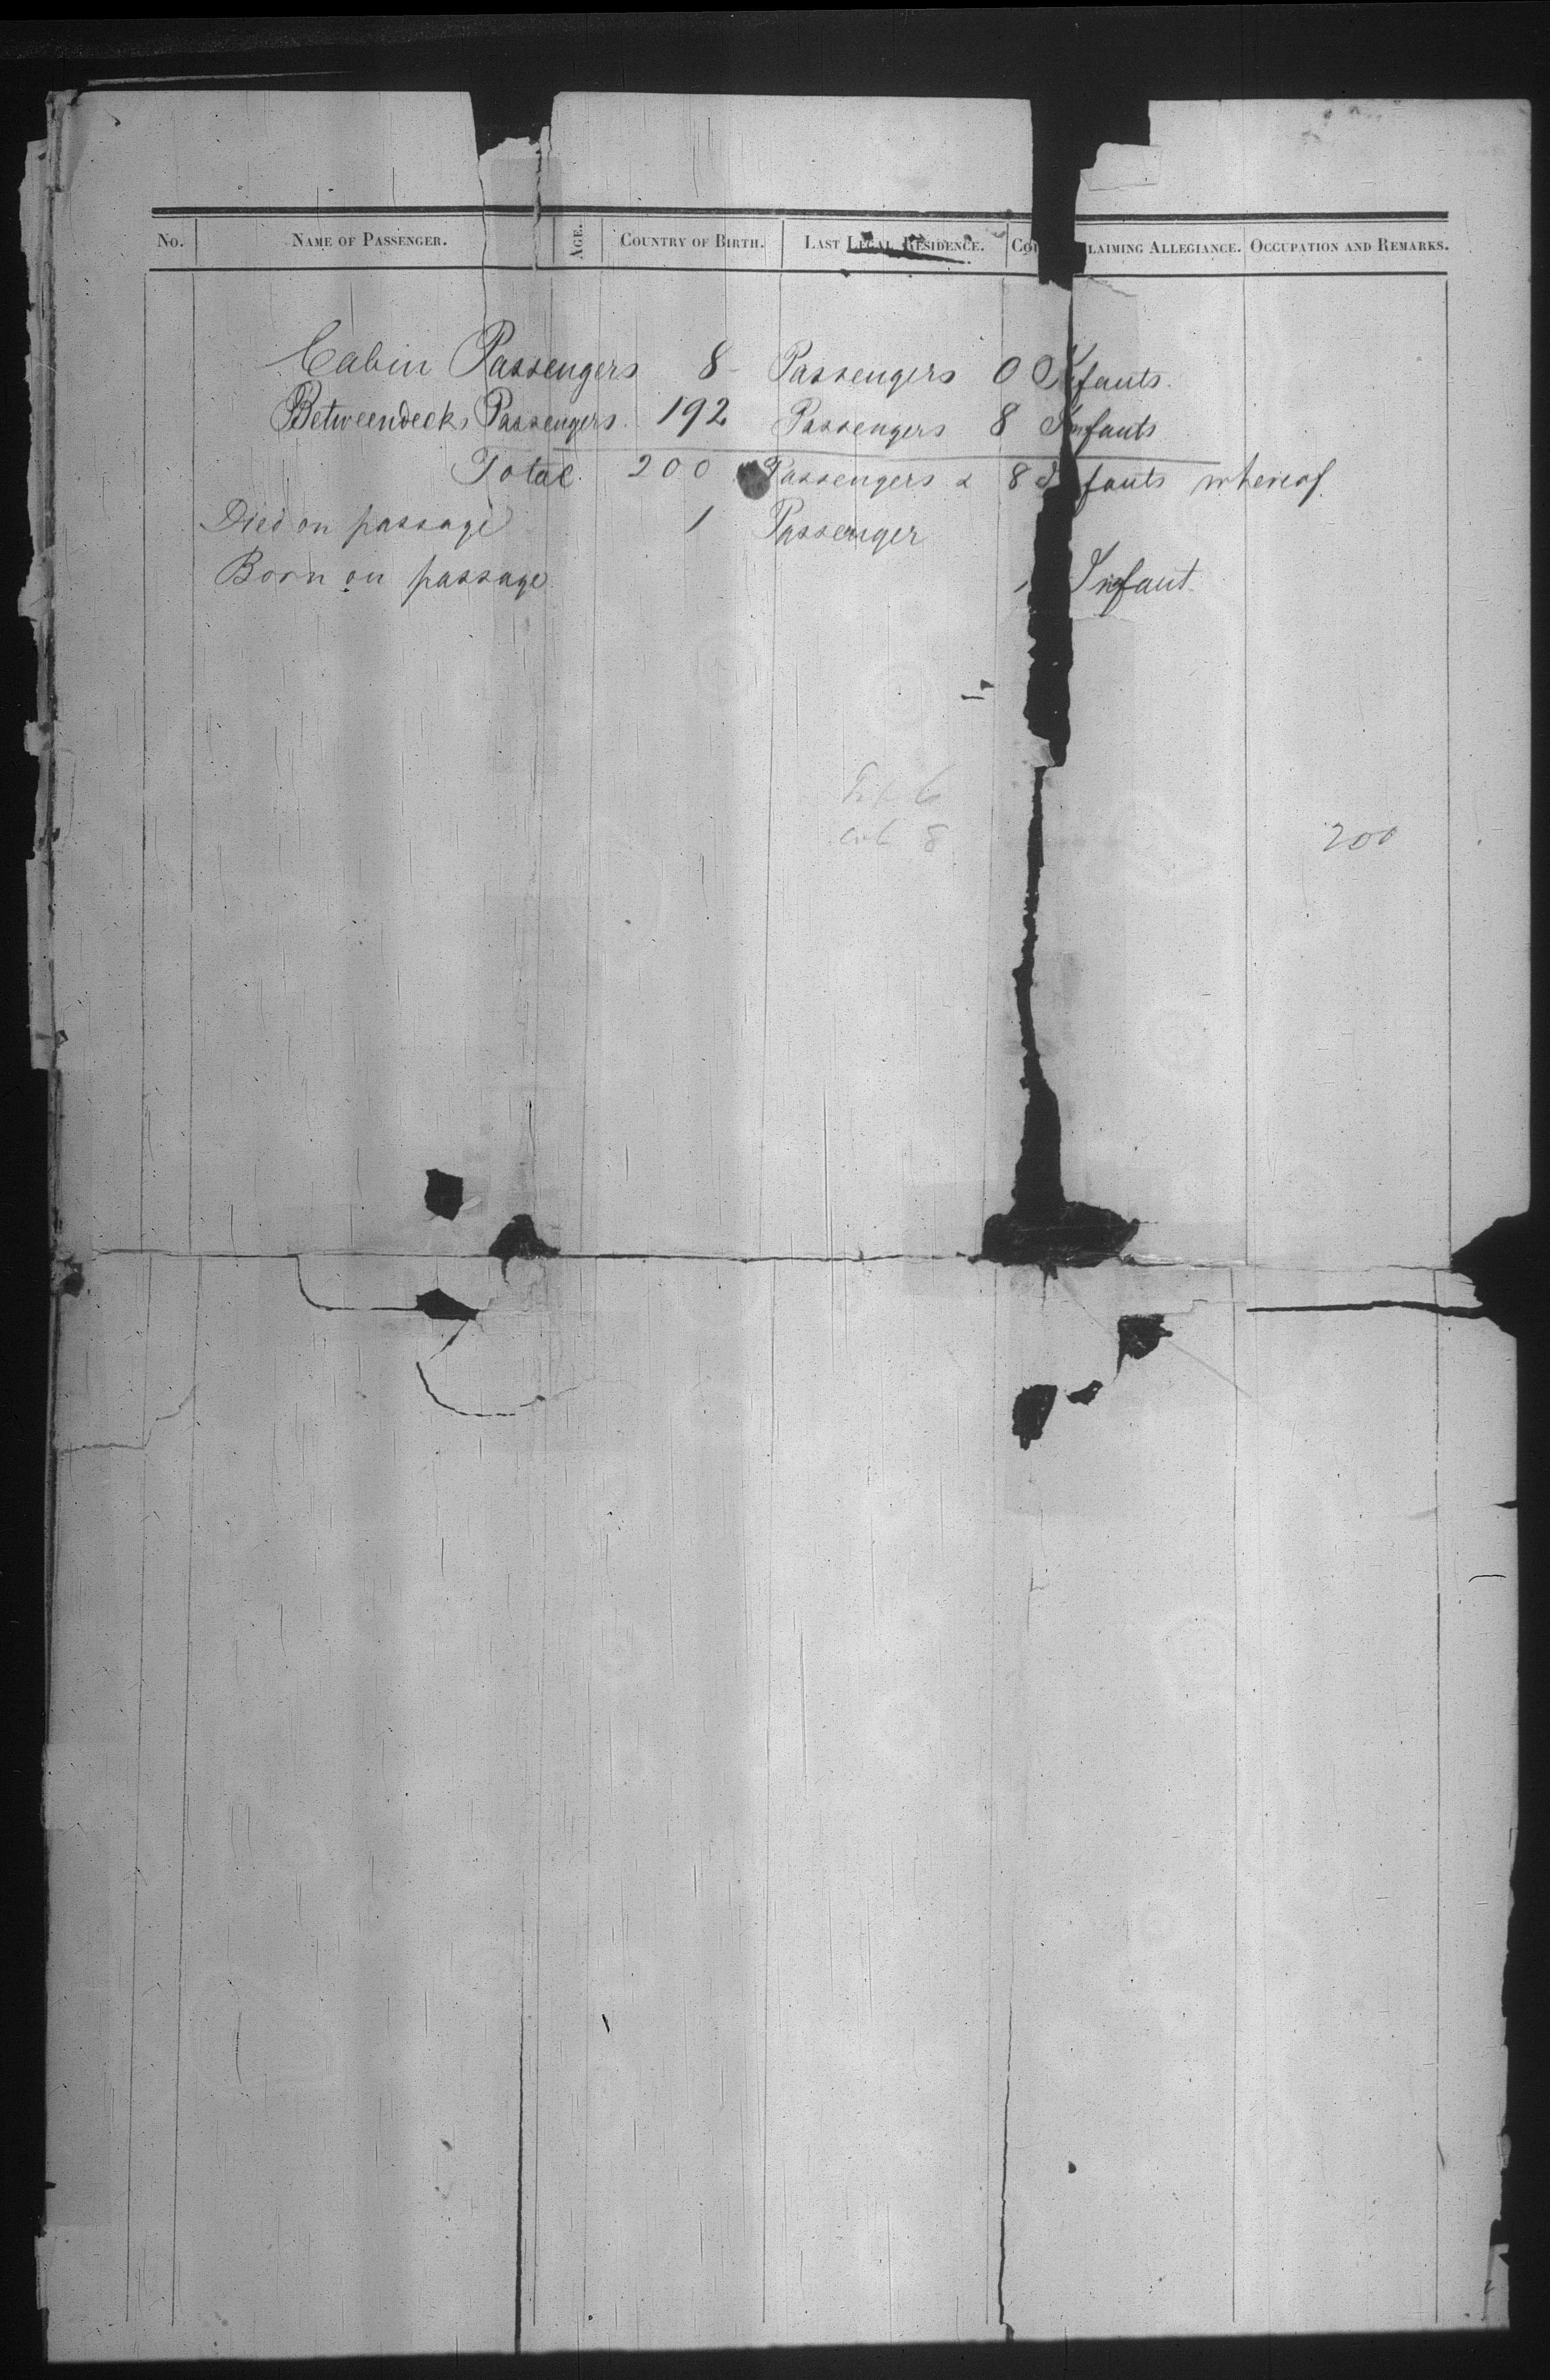 No. NAME OF PASSENGER. AGE. COUNTRY OF BIRTH. LAST LEGAL RESIDENCE. CO LAIMING ALLEGIANCE. OCCUPATION AND REMARKS.
Cabin Passengers 8 Passengers 0 Infants.
Betweendecks Passengers. 192 Passengers 8 Infants
Total. 200 Passengers & 8 Infants whereof.
Died on passage 1 Passenger
Born on passage. 1 Infant.
6
8 200